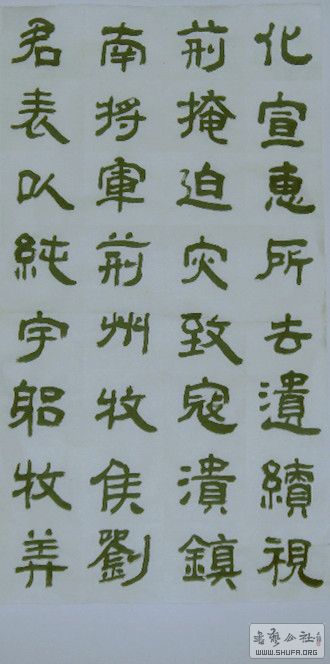 化宣惠所去遺續視
荊掩迫灾致寇潰鎮
南将軍荊州牧侯劉
君表以純字躳牧
書藝公社
WWW.SHUFA.ORG